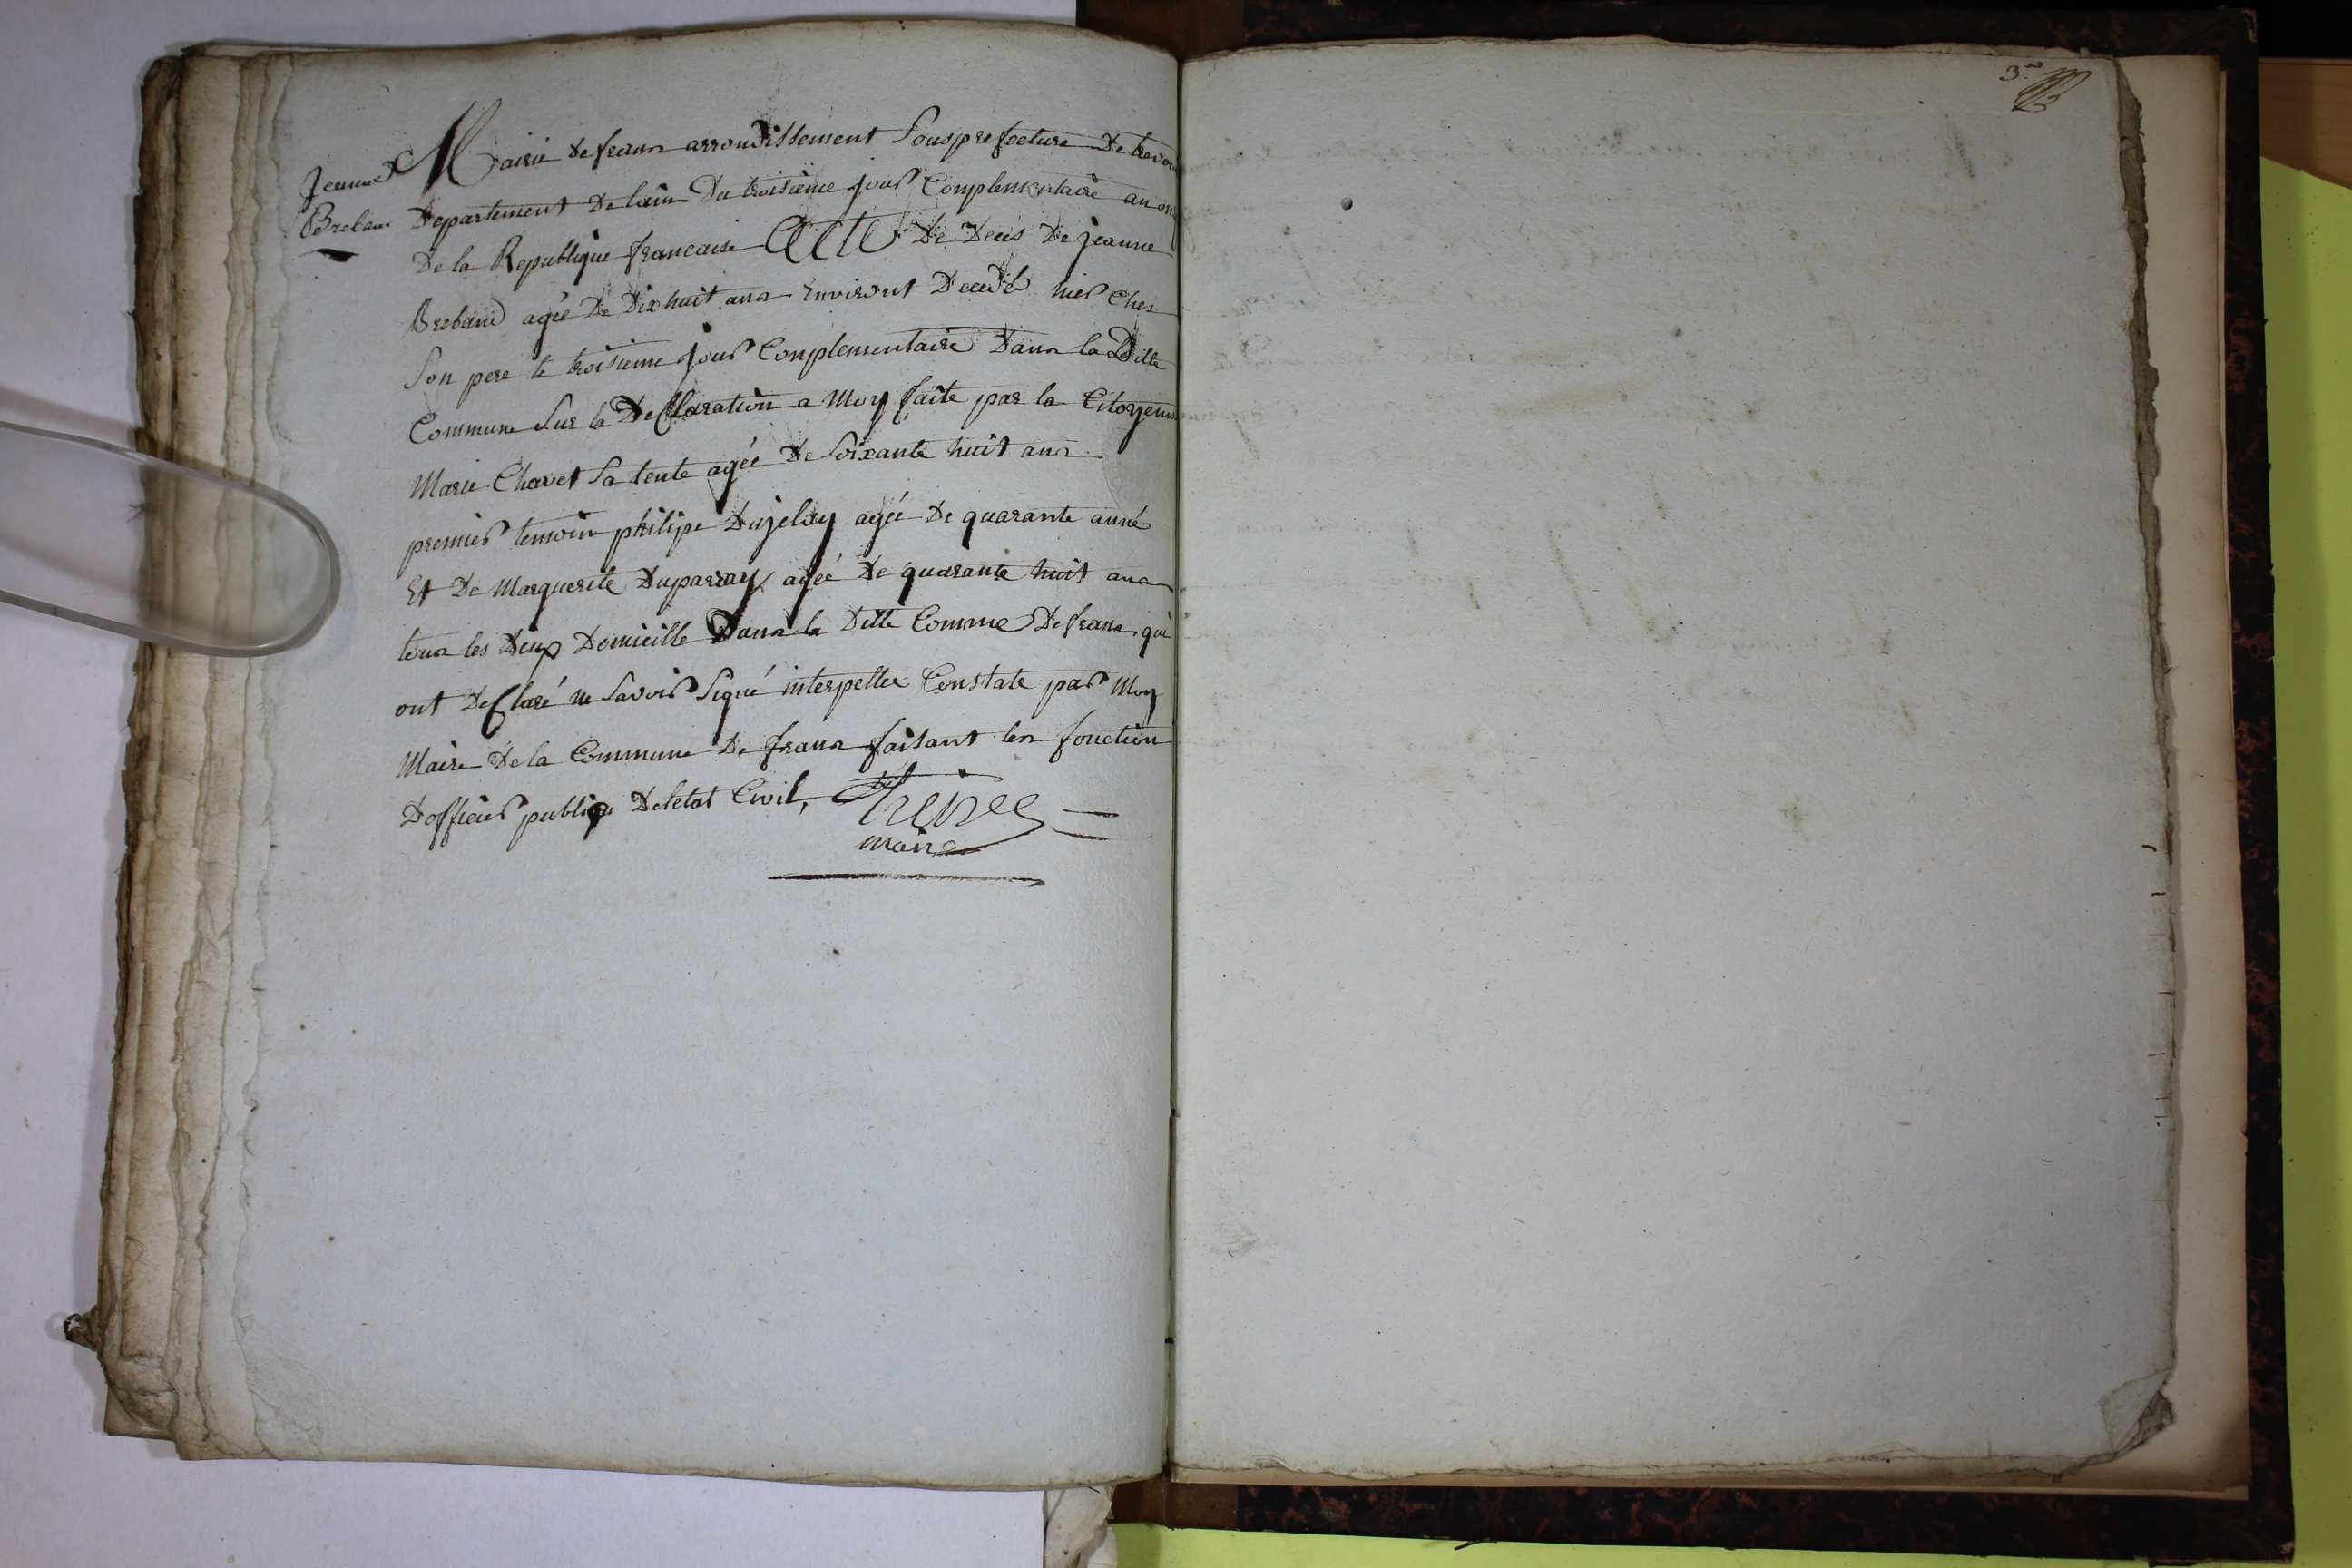 3.
Jeanne
Breban
Mairie de frans arrondissement Sousprefecture De trevou
Departement De lain Du troisieme jour Complementaire an on
De la Republique francaise Acte De Decés De jeanne
Breband agée De Dix huit ans Environt Decedé hier Ches
Son pere le troisieme jour Complementaire Dans la Ditte
Commune Sur la Declaration a Moy faite par la Citoyenne
Marie Chavet Sa tente agée De Soixante huit ans
premier temoin philipe Dujelay agée De quarante anné
Et De Marguerite Duparay agée De quarante huit ans
tous les Deux Domicille Dans la Ditte Comme De frans qui
ont Declaré ne Savoir Signé interpellee Constate par Moy
Maire De la Commune De frans faisant les fonction
Dofficier publique Deletat Civil,
maire